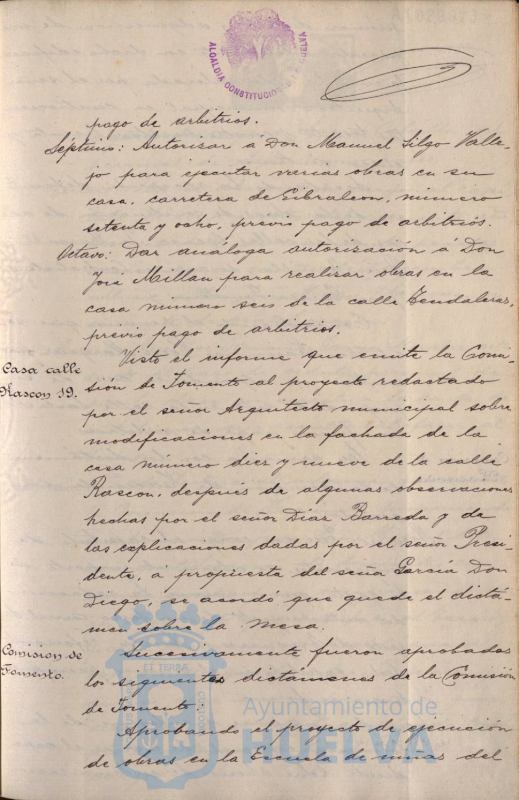 ALCALDIA CONSTITUCIONAL HUELVA
pago de arbitrios.
Séptimo: Autorizar á Don Manuel Silgo Valle-
jo para ejecutar varias obras en su
casa, carretera de Gibraleon, número
setenta y ocho, previo pago de arbitrios.
Octavo: Dar análoga autorización á Don
José Millan para realizar obras en la
casa número seis de la calle Tendaleras,
previo pago de arbitrios.
Casa calle
Rascon 19.
Visto el informe que emite la Comi-
sión de Fomento al proyecto redactado
por el señor Arquitecto municipal sobre
modificaciones en la fachada de la
casa número diez y nueve de la calle
Rascon, después de algunas observaciones
hechas por el señor Díaz Barreda y de
las explicaciones dadas por el señor Presi-
dente, á propuesta del señor García Don
Diego, se acordó que quede el dictá-
men sobre la mesa.
Comision de
Fomento.
Sucesivamente fueron aprobados
los siguientes dictámenes de la Comisión
de Fomento.
Aprobando el proyecto de ejecución
de obras en la Escuela de minas del
Ayuntamiento de
HUELVA